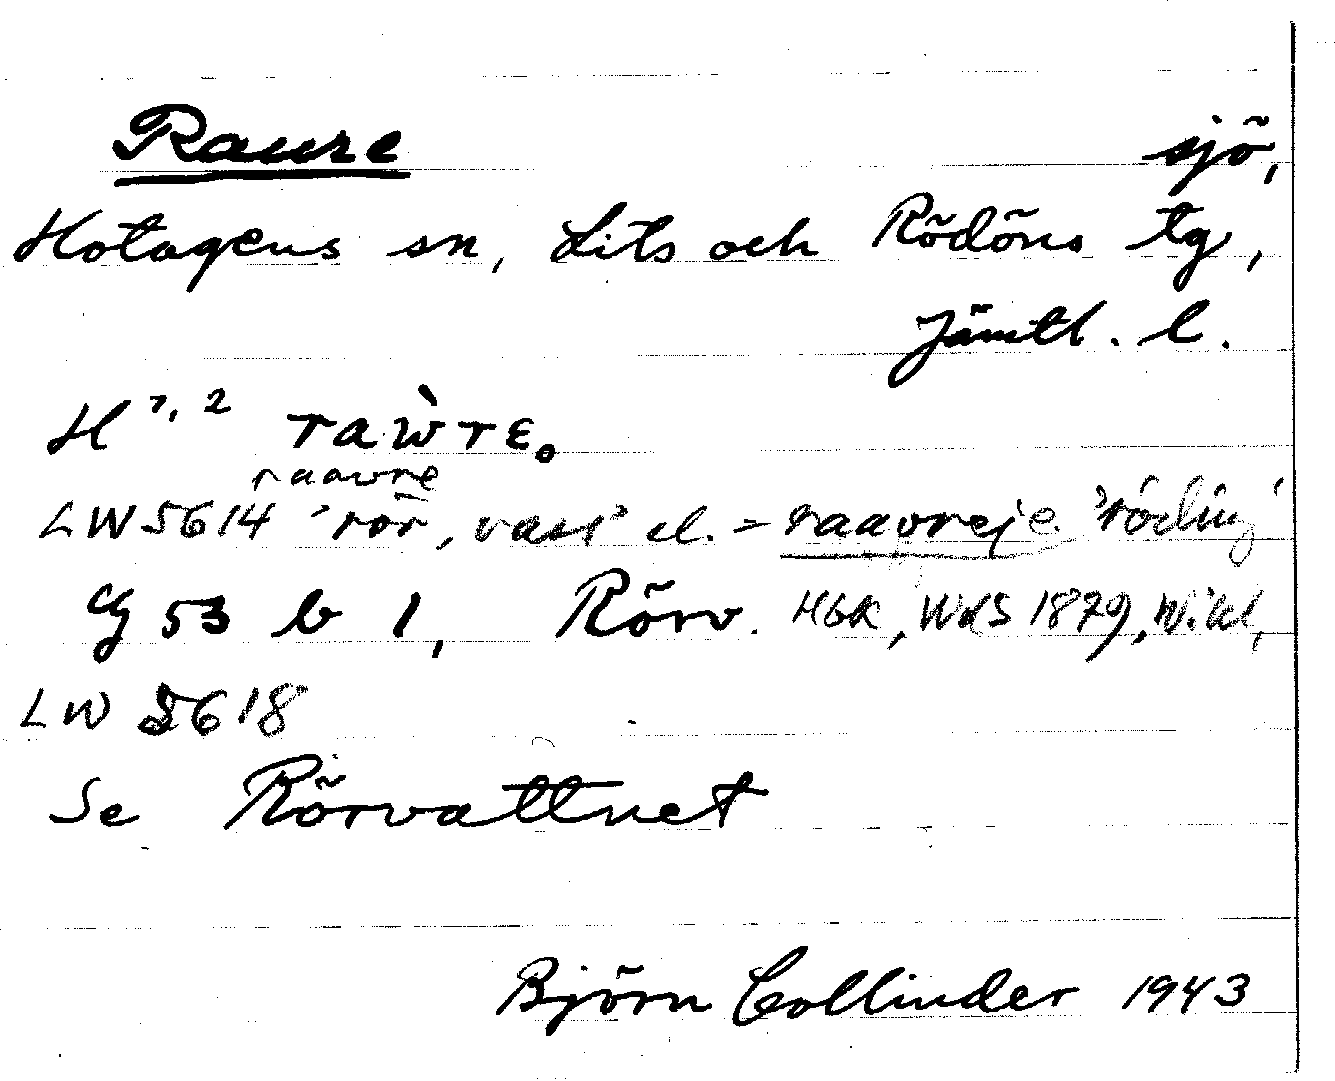 Raure sjö,
Hotagens sn, Lits och Rödöns tg,
Jämtl. l.
H 7, 2 raẁrɛ.
raavre
LW 5614 'rör, vass' el. = raavreje 'röding'
G 53 b 1, Rörv. HbK, WdS 1879, Wikl,
LW 5618
Se Rörvattnet
Björn Collinder 1943